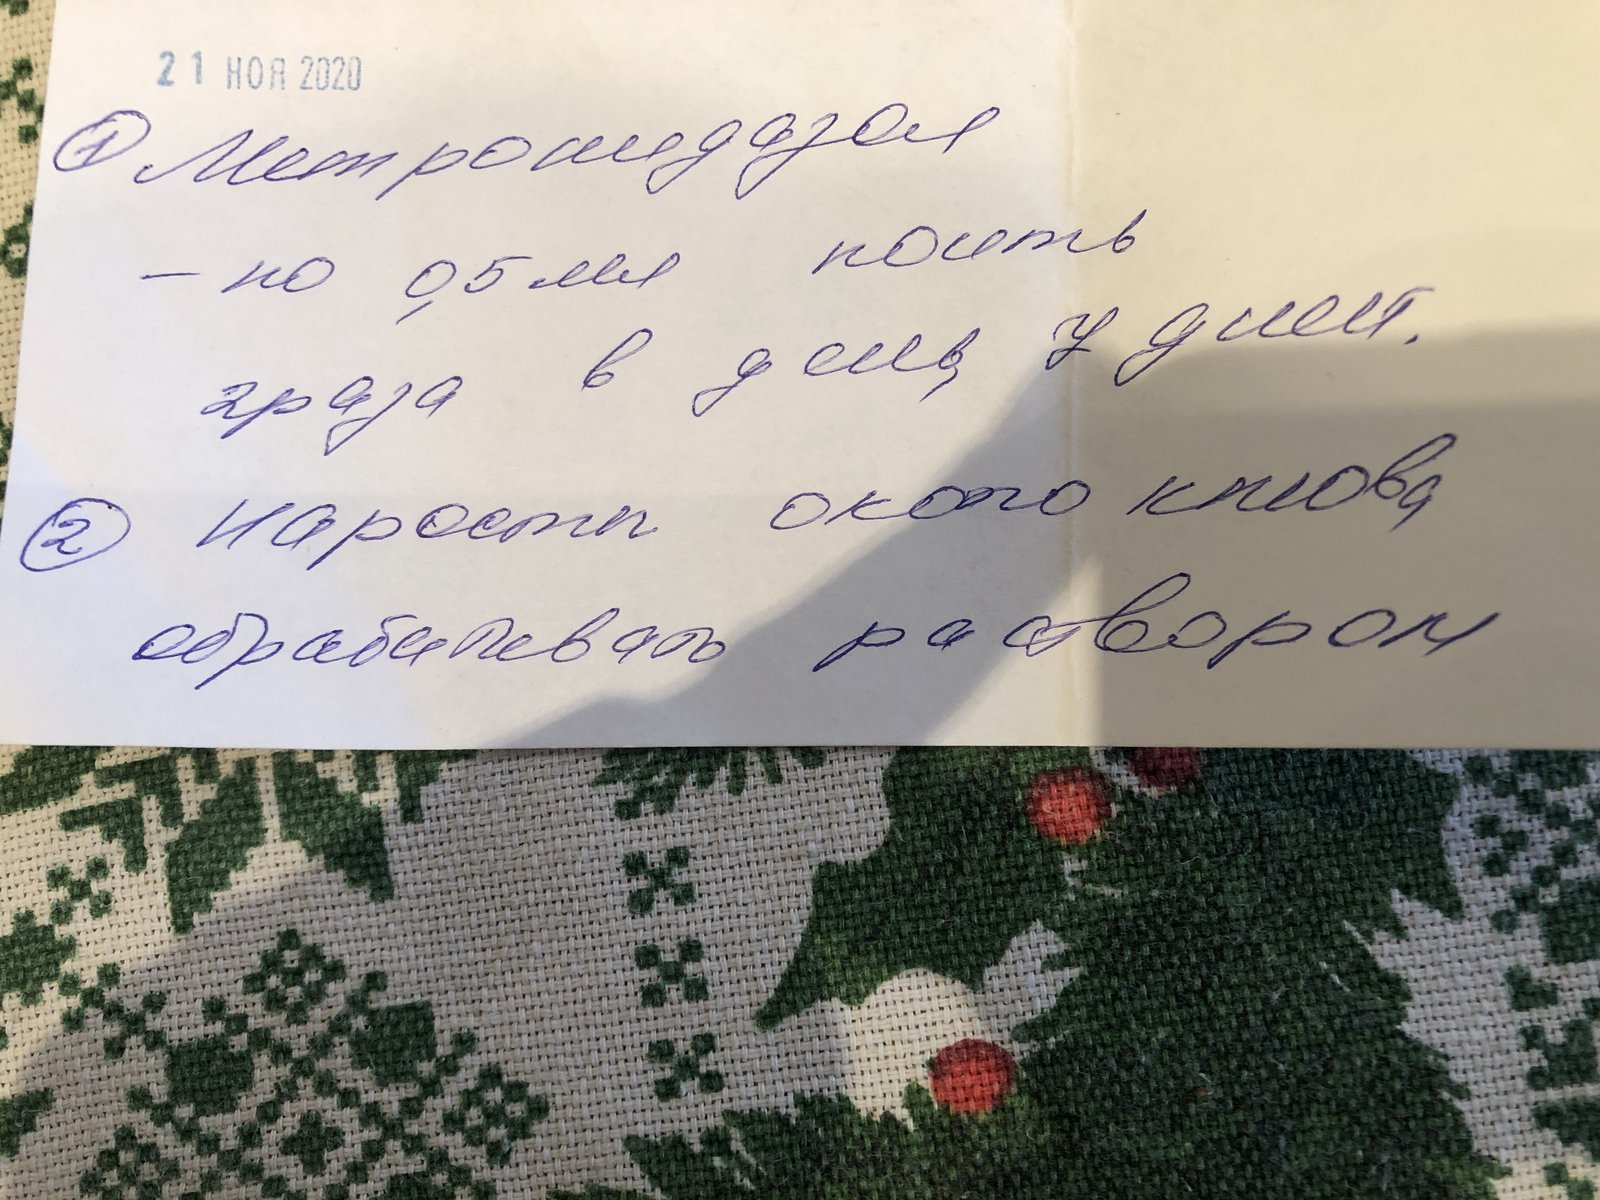 21 НОЯ 2020
① Метронидазол
- по 0,5 мл поить
2 раза в день, 7 дней.
② Наросты около клюва
обрабатывать раствором